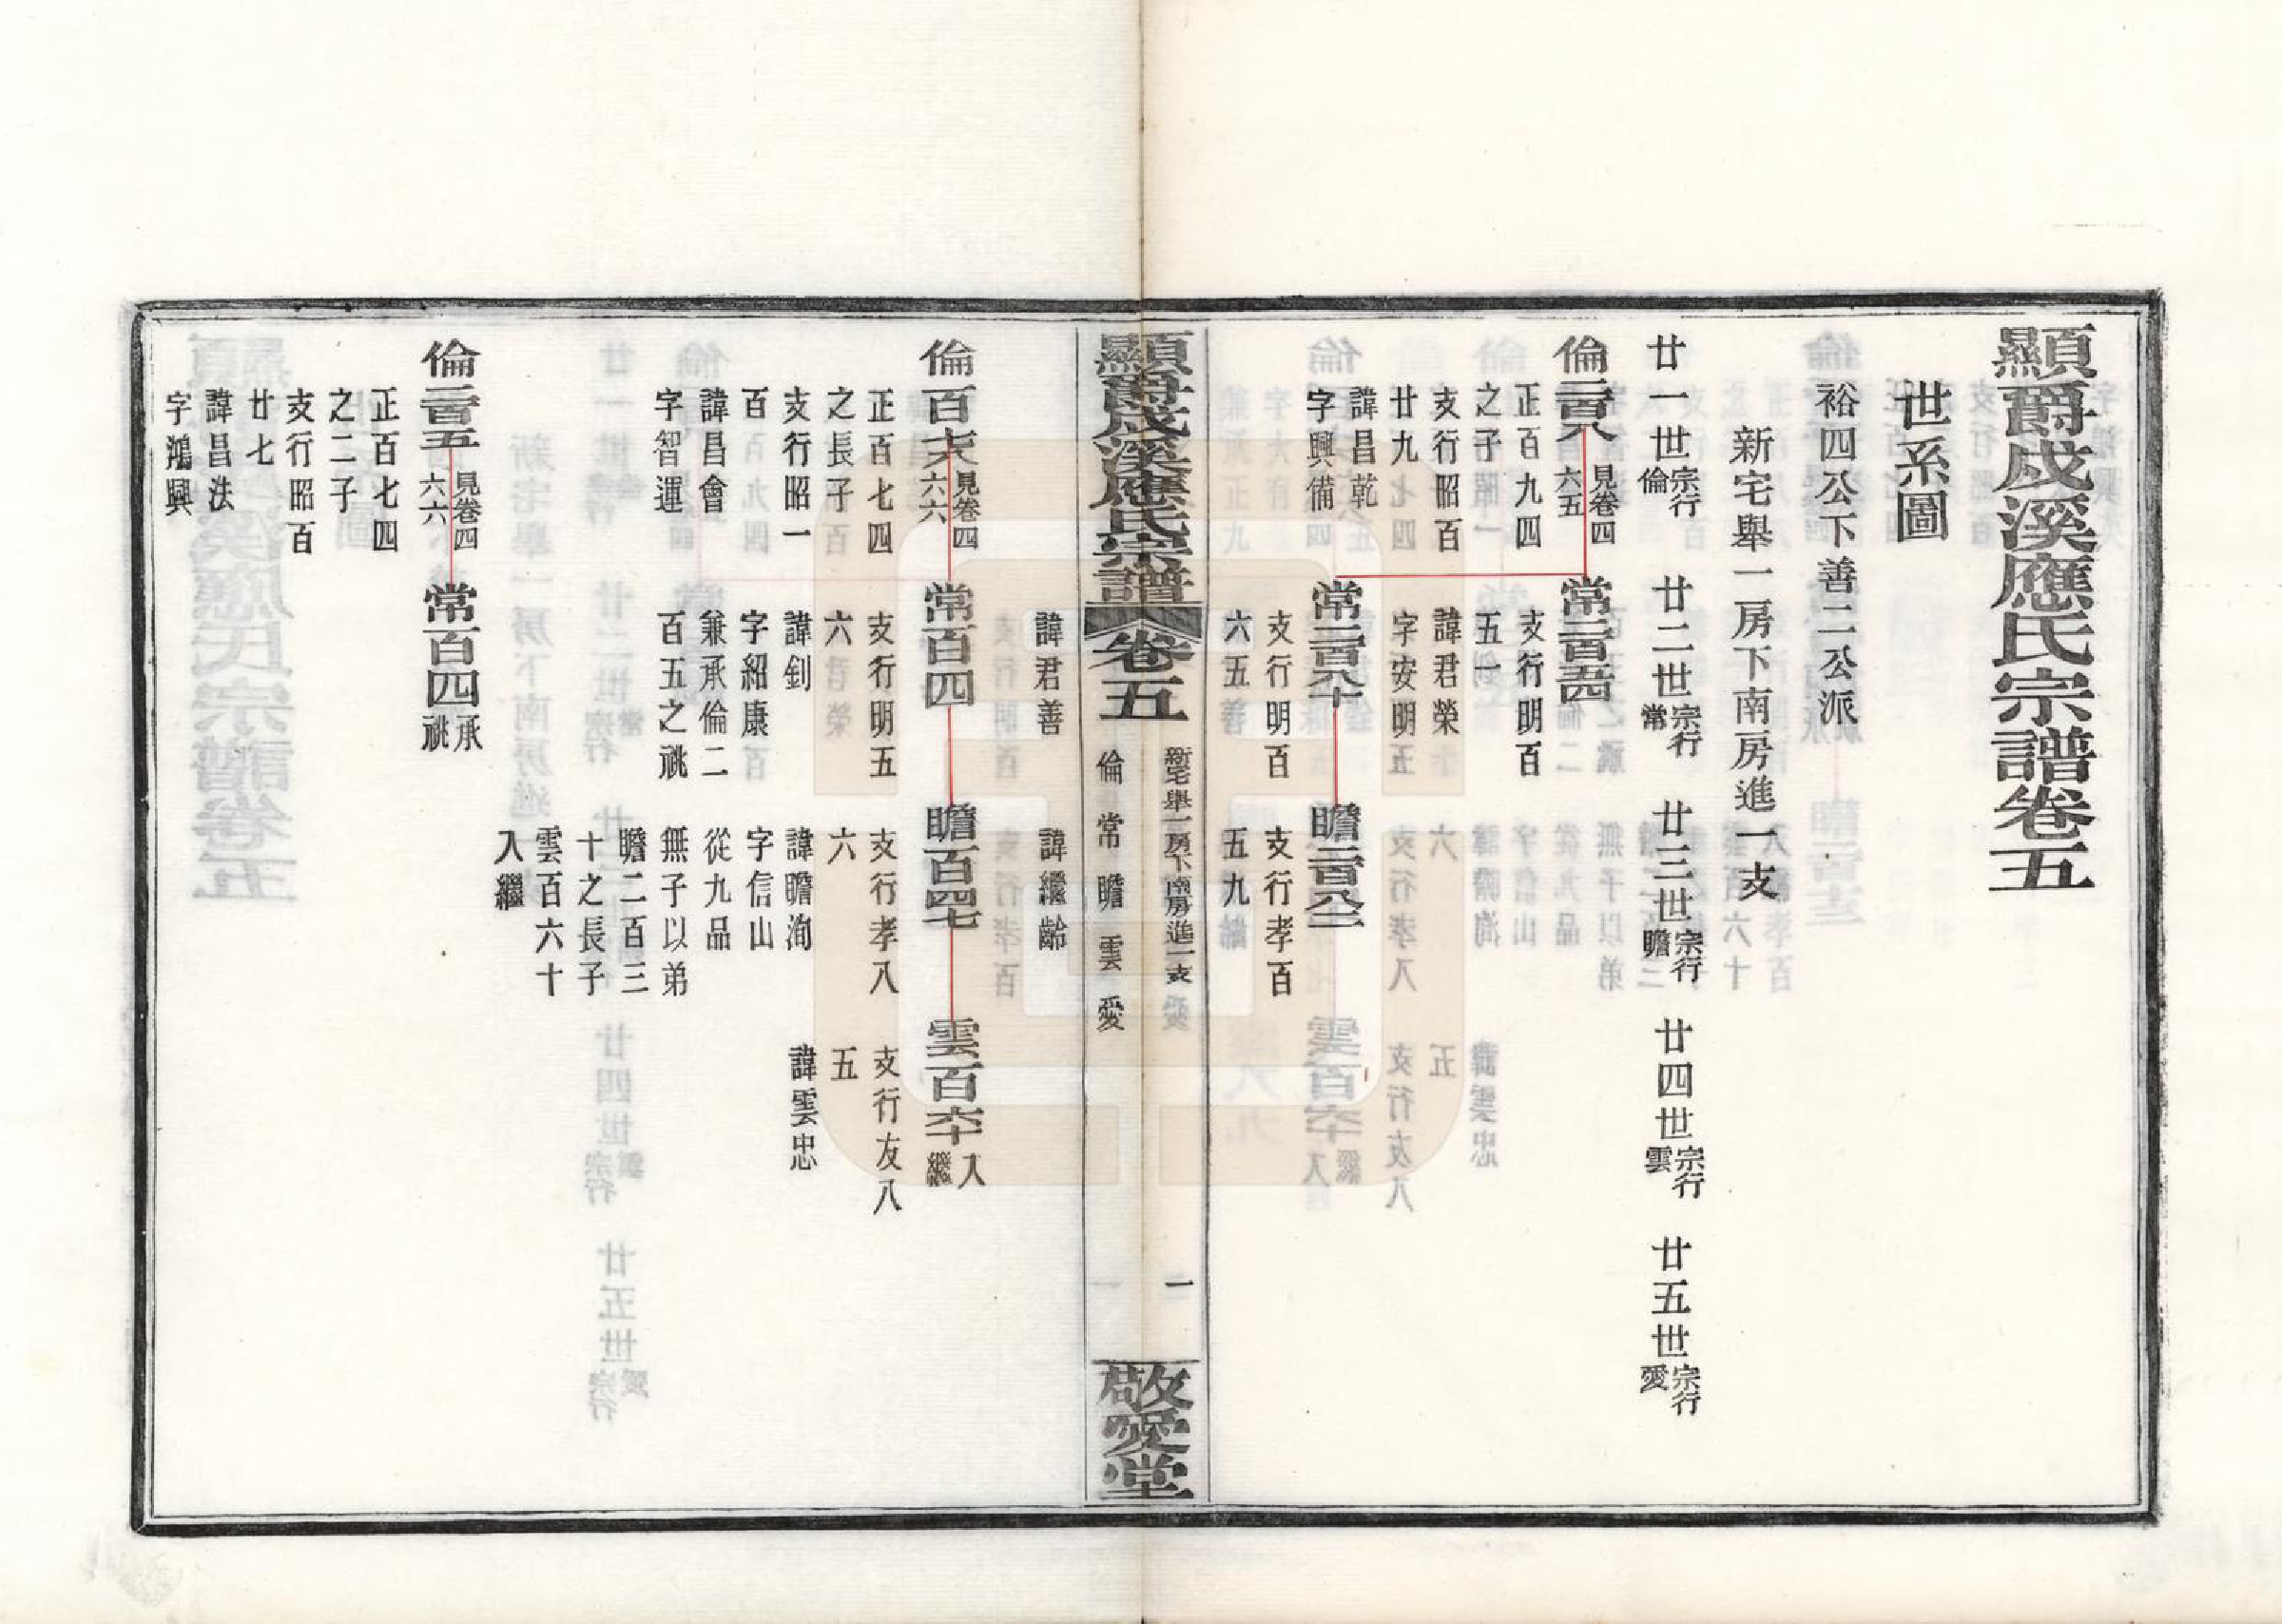 顯爵戍溪應氏宗譜卷五
世系圖
裕四公下善二公派
新宅舉一房下南房進一支
廿一世宗行倫 廿二世宗行常 廿三世宗行瞻 廿四世宗行雲 廿五世宗行愛
倫二百八 見卷四六五
正百九四
之子
支行昭百
廿九
諱昌乾
字興備
常二百五四
支行明百
五一
諱君榮
字安明
常二百六十
支行明百
六五
諱君善
瞻二百八二
支行孝百
五九
諱繼齡
顯爵戍溪應氏宗譜 卷五 新宅舉一房下南房進一支 倫常瞻雲愛 一 敬愛堂
倫百六 見卷四六六
正百七四
之長子
支行昭一
百
諱昌會
字智運
常百四
支行明五
六
諱釗
字紹康
兼承倫二
百五之祧
瞻百四七
支行孝八
六
諱瞻洵
字信山
從九品
無子以弟
瞻二百三
十之長子
雲百六十
入繼
雲百六十 入繼
支行友八
五
諱雲忠
倫二百五 見卷四六六
正百七四
之二子
支行昭百
廿七
諱昌法
字鴻興
常百四 承祧